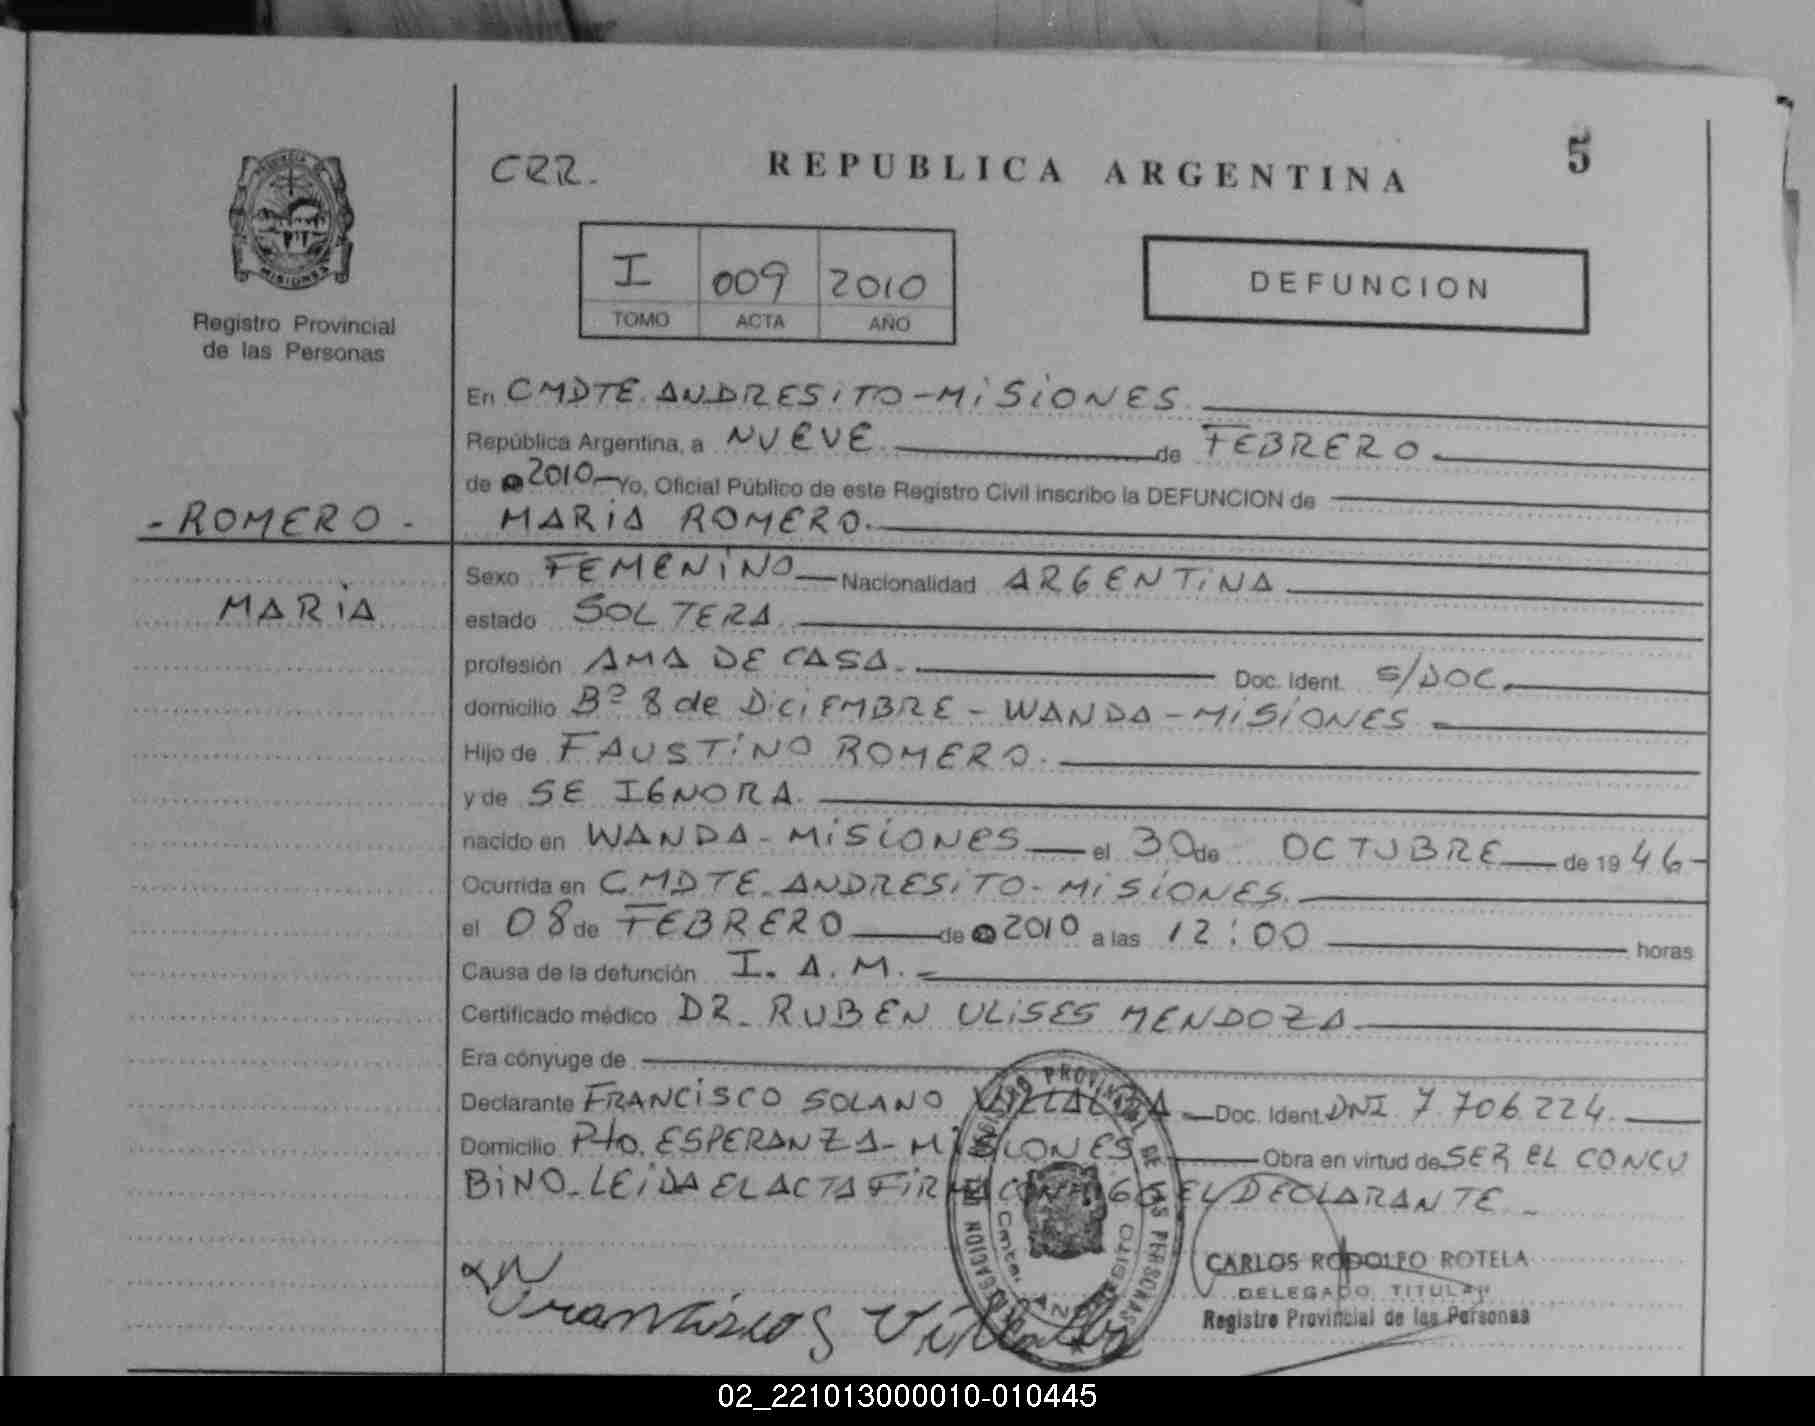 CRR.
REPUBLICA ARGENTINA
5
PROVINCIA DE
MISIONES
Registro Provincial
de las Personas
I 009 2010
TOMO ACTA AÑO
DEFUNCION
En CMDTE. ANDRESiTO - MiSiONES
República Argentina, a NUEVE de FEBRERO
de 2010 Yo, Oficial Público de este Registro Civil inscribo la DEFUNCION de
- ROMERO -
MARiA ROMERO.
Sexo FEMENiNO Nacionalidad ARGENTiNA
MARiA
estado SOLTERA
profesión AMA DE CASA. Doc. Ident. S/DOC.
domicilio Bº 8 de DiCiEMBRE - WANDA - MiSiONES
Hijo de FAUSTiNO ROMERO.
y de SE IGNORA.
nacido en WANDA - MiSiONES el 30 de OCTUBRE de 19 46-
Ocurrida en CMDTE. ANDRESiTO - MiSiONES.
el 08 de FEBRERO de 2010 a las 12:00 horas
Causa de la defunción I. A. M. -
Certificado médico DR. RUBEN ULiSES MENDOZA
Era cónyuge de
Declarante FRANCiSCO SOLANO VILLALBA Doc. Ident. DNI 7.706.224.
Domicilio Pto. ESPERANZA - MiSiONES Obra en virtud de SER EL CONCU
BiNO. LEiDA EL ACTA FiRMA CONMIGO EL DECLARANTE -
Francisco S Villalba
REGISTRO PROVINCIAL DE LAS PERSONAS
DELEGACION
Cmte. ANDRESITO
CARLOS RODOLFO ROTELA
DELEGADO TITULAR
Registro Provincial de las Personas
02_221013000010-010445